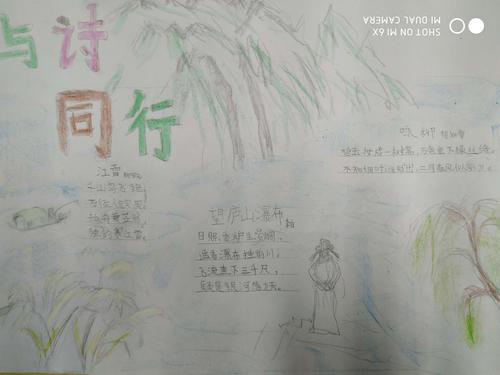 与诗
同行
江雪
千山鸟飞绝,
万径人踪灭。
孤舟蓑笠翁,
独钓寒江雪。
望庐山瀑布
日照香炉生紫烟,
遥看瀑布挂前川。
飞流直下三千尺,
疑是银河落九天。
咏柳 贺知章
碧玉妆成一树高,万条垂下绿丝绦。
不知细叶谁裁出,二月春风似剪刀。
SHOT ON MI 6X
MI DUAL CAMERA